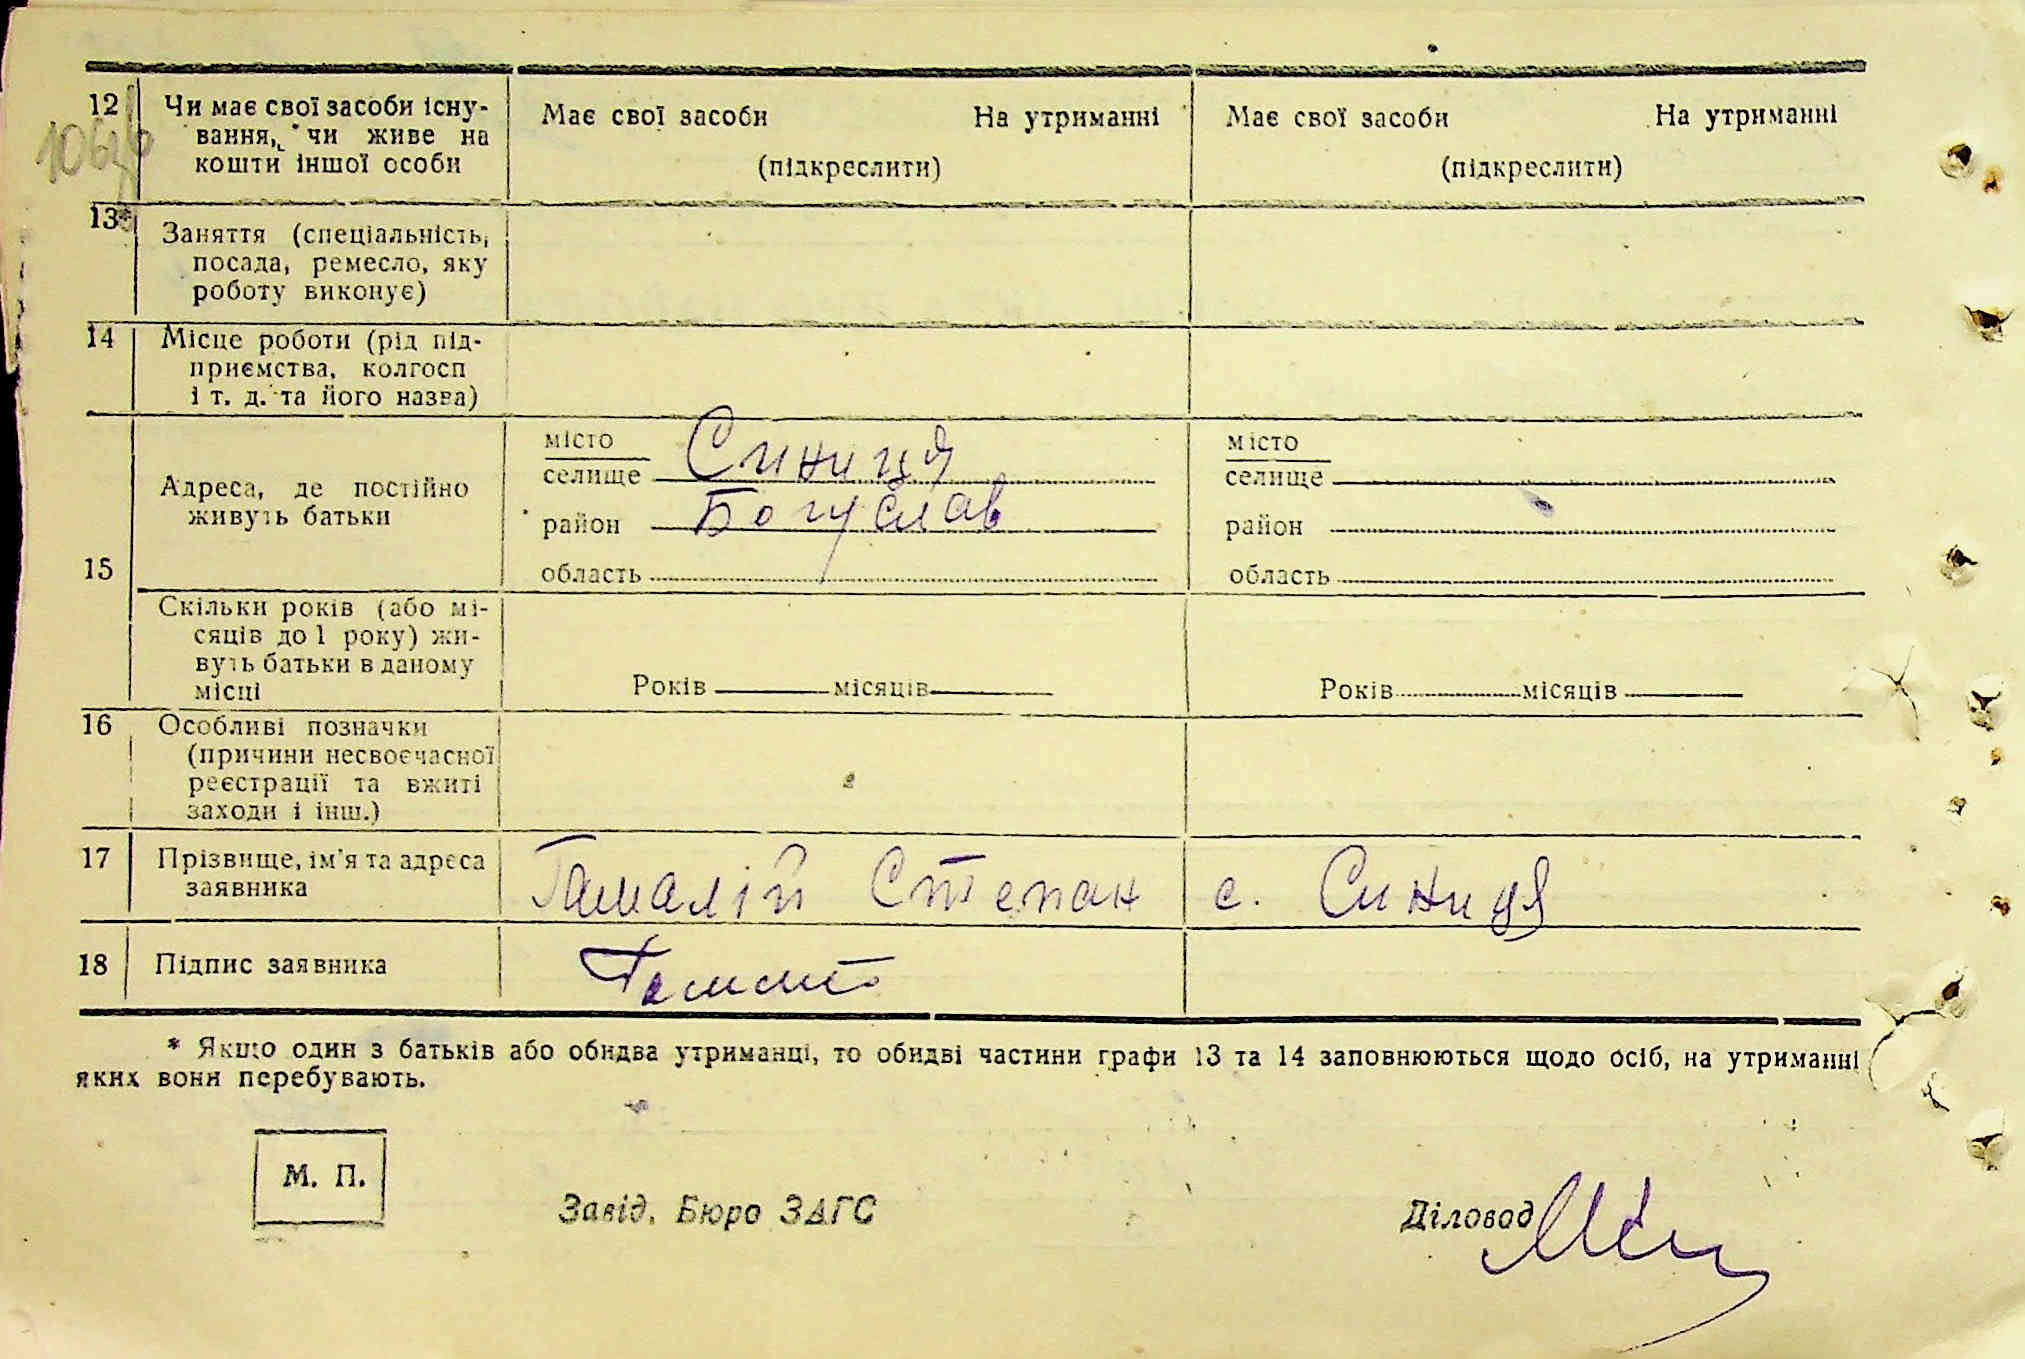 12 Чи має свої засоби існу- Має свої засоби На утриманні Має свої засоби На утриманні
вання, чи живе на
кошти іншої особи (підкреслити) (підкреслити)
106
13* Заняття (спеціальність,
посада, ремесло, яку
роботу виконує)
14 Місце роботи (рід під-
приємства, колгосп
і т. д. та його назва)
15 Адреса, де постійно
живуть батьки
місто
селище Синиця
район Богуслав
область
місто
селище
район
область
Скільки років (або мі-
сяців до 1 року) жи-
вуть батьки в даному
місці
Років місяців Років місяців
16 Особливі позначки
(причини несвоєчасної
реєстрації та вжиті
заходи і інш.)
17 Прізвище, ім'я та адреса Гамалій Степан с. Синиця
заявника
18 Підпис заявника
* Якщо один з батьків або обидва утриманці, то обидві частини графи 13 та 14 заповнюються щодо осіб, на утриманні
яких вони перебувають.
М. П.
Завід. Бюро ЗАГС Діловод